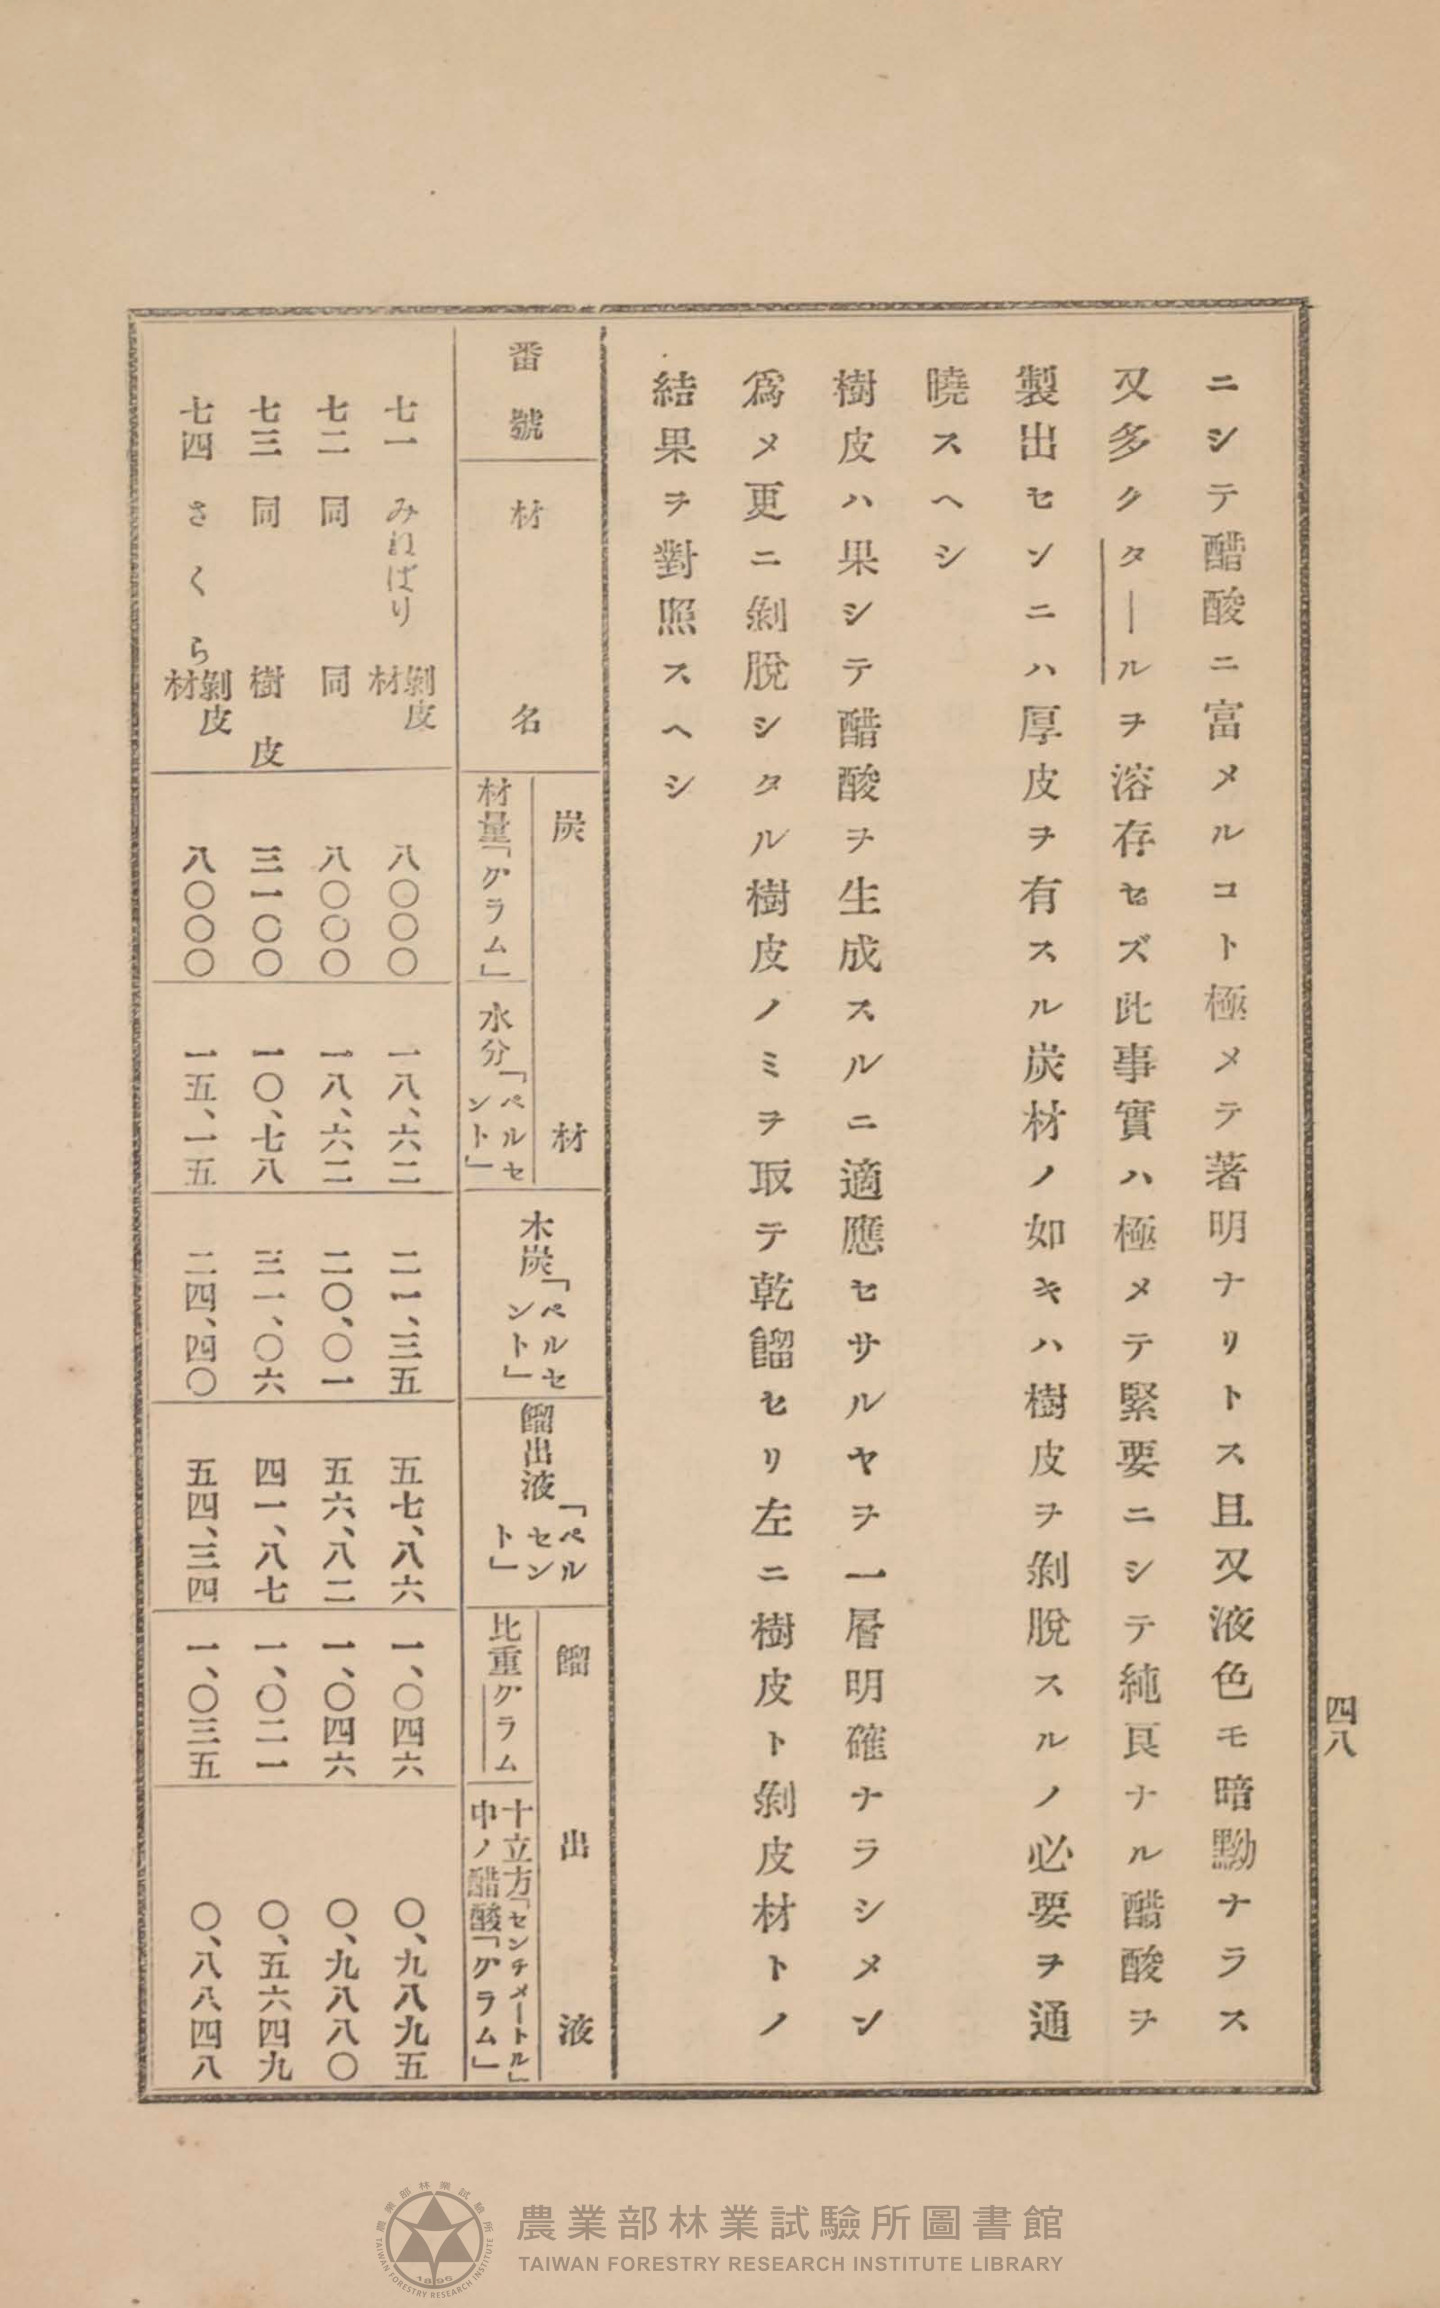 四八
ニシテ醋酸ニ富メルコト極メテ著明ナリトス且又液色モ暗黝ナラス
又多クタールヲ溶存セズ此事實ハ極メテ緊要ニシテ純良ナル醋酸ヲ
製出センニハ厚皮ヲ有スル炭材ノ如キハ樹皮ヲ剝脫スルノ必要ヲ通
曉スヘシ
樹皮ハ果シテ醋酸ヲ生成スルニ適應セサルヤヲ一層明確ナラシメン
爲メ更ニ剝脫シタル樹皮ノミヲ取テ乾餾セリ左ニ樹皮ト剝皮材トノ
結果ヲ對照スヘシ
番號 材名 炭材 材量「グラム」 水分「ペルセント」 木炭「ペルセント」 餾出液「ペルセント」 餾出液 比重グラム 十立方「センチメートル」中ノ醋酸「グラム」
七一 みねばり 剝皮材 八〇〇〇 一八、六二 二一、三五 五七、八六 一、〇四六 〇、九八九五
七二 同 同 八〇〇〇 一八、六二 二〇、〇一 五六、八二 一、〇四六 〇、九八八〇
七三 同 樹皮 三一〇〇 一〇、七八 三一、〇六 四一、八七 一、〇二一 〇、五六四九
七四 さくら 剝皮材 八〇〇〇 一五、一五 二四、四〇 五四、三四 一、〇三五 〇、八八四八
農業部林業試驗所圖書館
TAIWAN FORESTRY RESEARCH INSTITUTE LIBRARY
農業部林業試驗所
TAIWAN FORESTRY RESEARCH INSTITUTE
1896